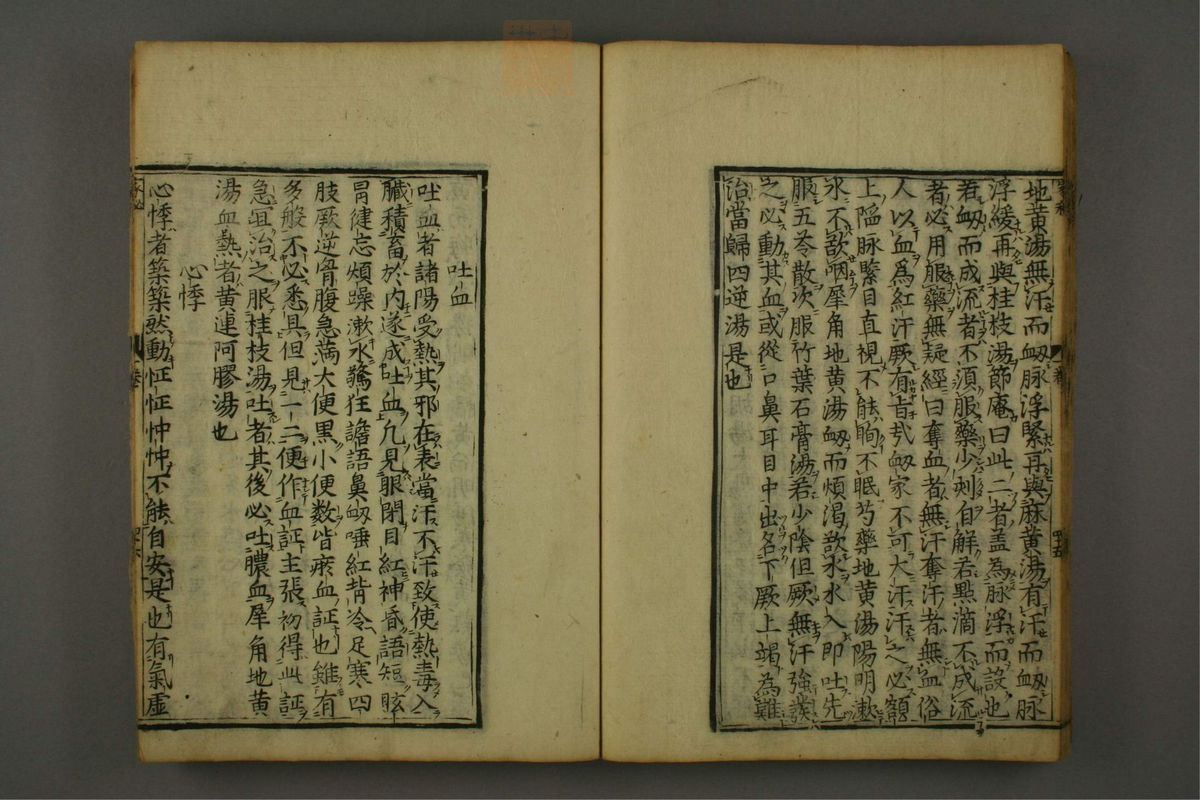 地黄湯無汗而衂脉浮緊再與麻黄湯有汗而衂脉
浮緩再與桂枝湯節庵曰此二者盖為脉浮而設也
若衂而成流者不須服藥少刻自解若點滴不成流
者必用服藥無疑經曰奪血者無汗奪汗者無血俗
人以血爲紅汗厥有旨㢤衂家不可大汗汗之必額
上陷脉緊目直視不能眴不眠芍藥地黄湯陽明漱
水不欲咽犀角地黄湯衂而煩渴欲水水入即吐先
服五苓散次服竹葉石膏湯若少陰但厥無汗強發
之必動其血或從口鼻耳目中出名下厥上竭為難
治當歸四逆湯是也
吐血
吐血者諸陽受熱其邪在表當汗不汗致使熱毒入
臓積畜於内遂成吐血凢見眼閉目紅神昏語短眩
冐健忘煩躁漱水驚狂譫語鼻衂唾紅背冷足寒四
肢厥逆胷腹急満大便黒小便数皆瘀血証也雖有
多般不必悉具但見一二便作血証主張初得此証
急宜治之服桂枝湯吐者其後必吐膿血犀角地黄
湯血熱者黄連阿膠湯也
心悸
心悸者築築然動怔怔忡忡不能自安是也有氣虚